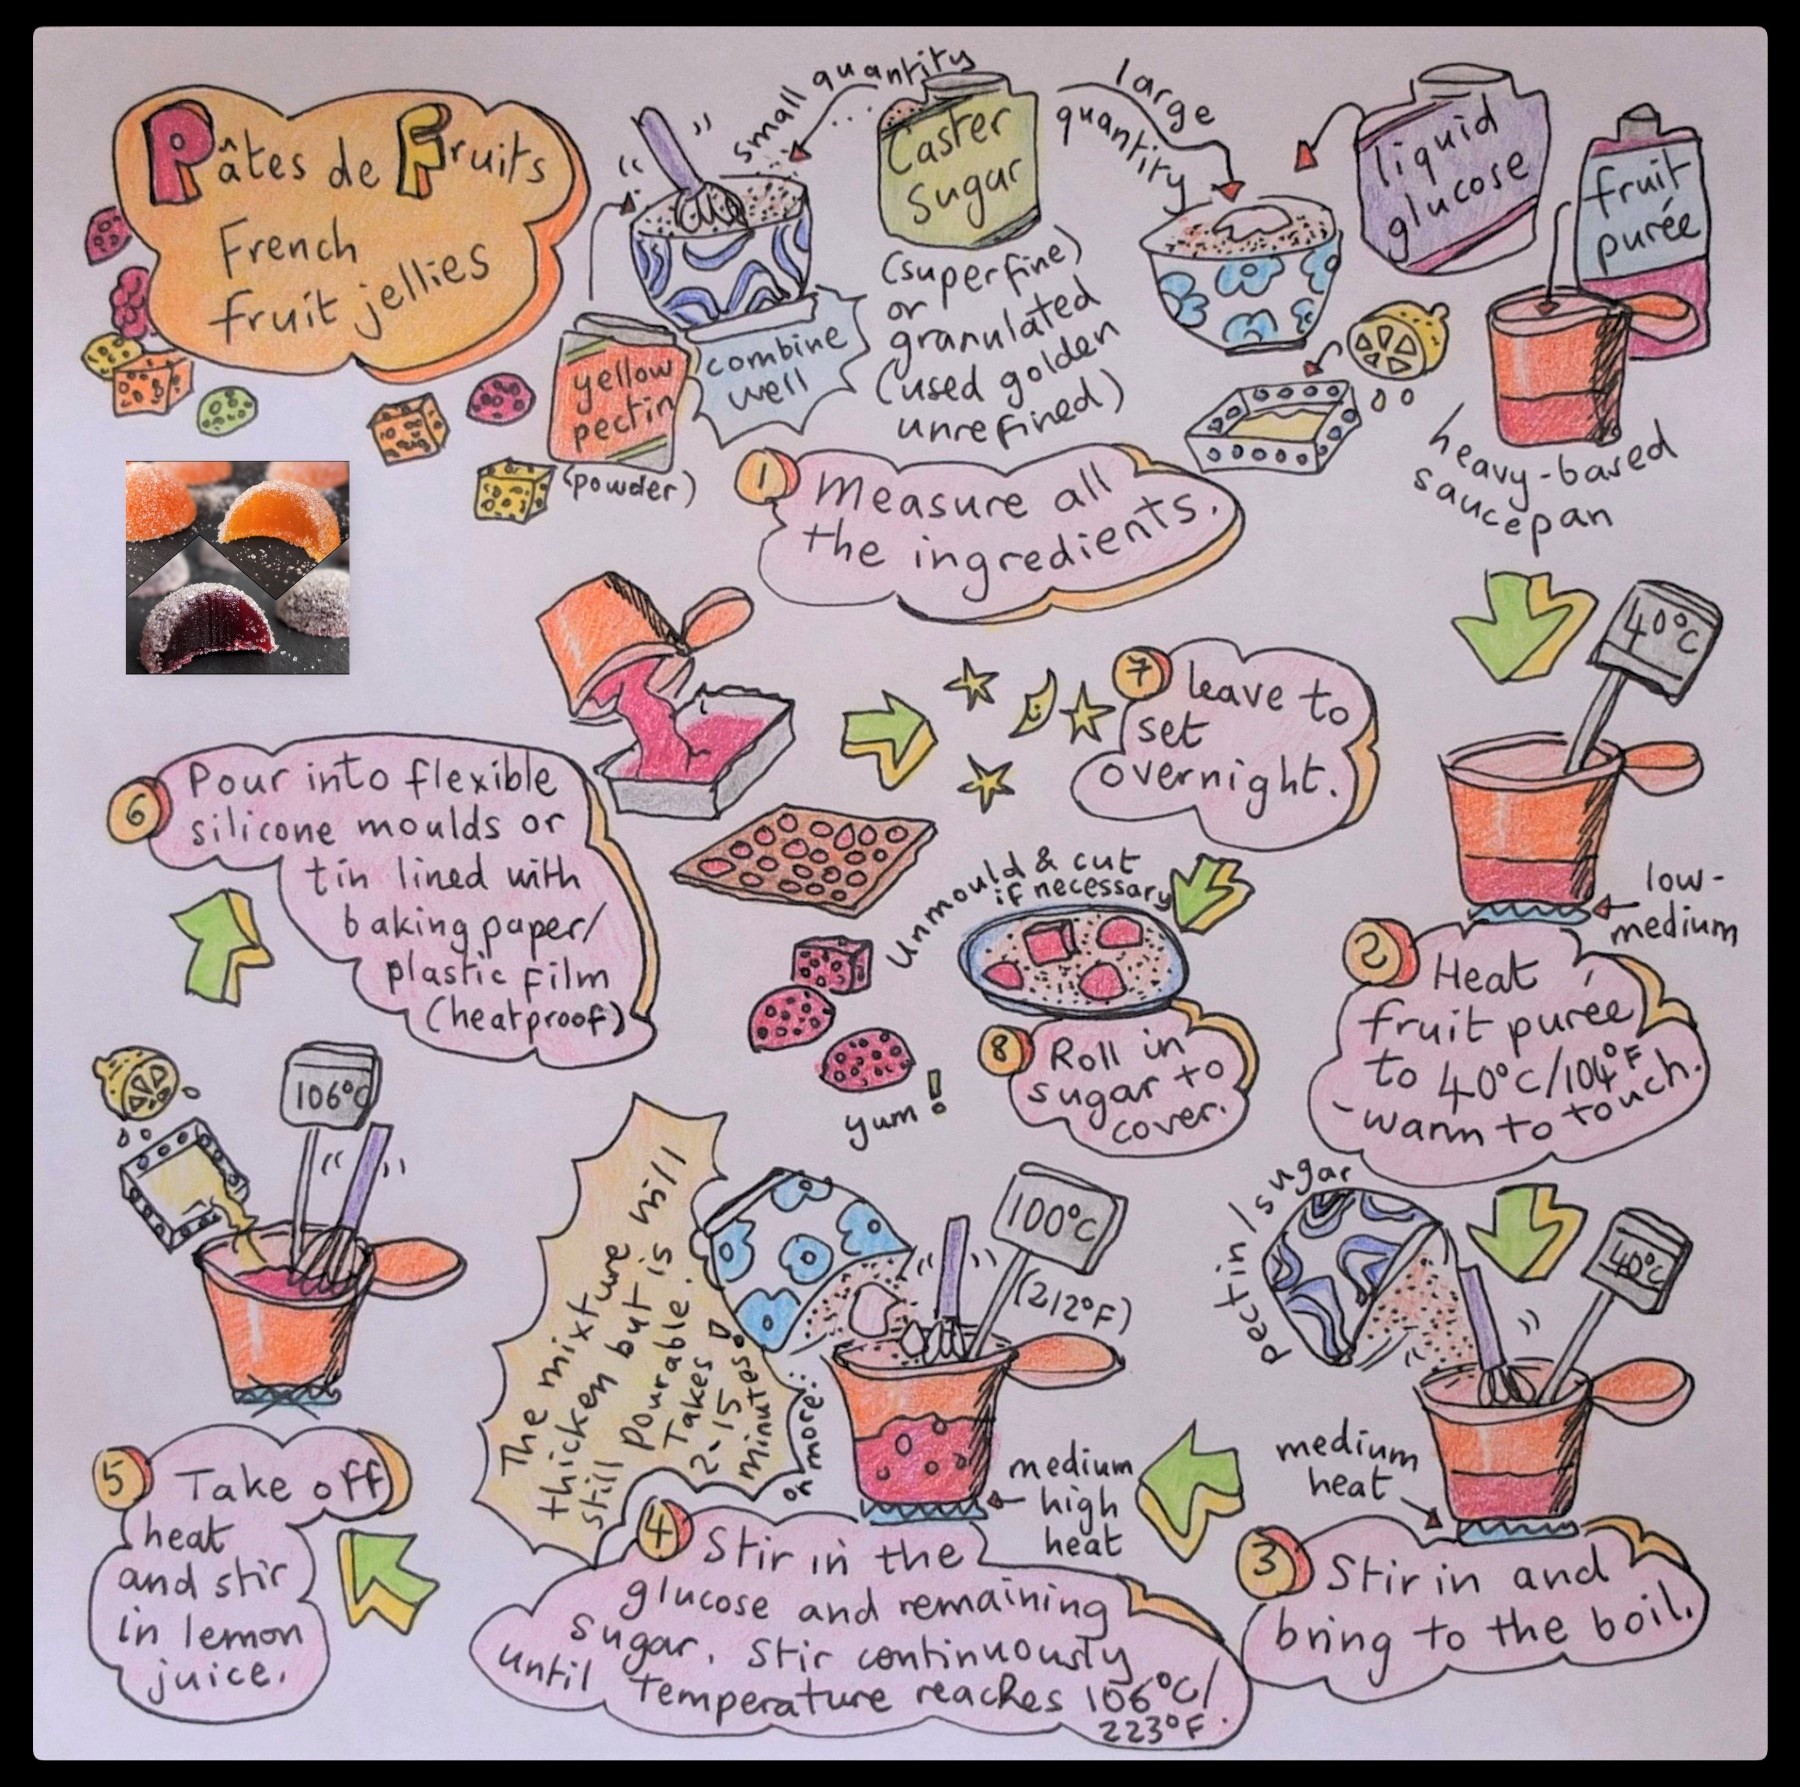 Pâtes de Fruits
French
fruit jellies
small quantity
Caster
Sugar
(superfine)
or
granulated
(used golden
unrefined)
large
quantity
liquid
glucose
fruit
purée
yellow
pectin
(powder)
combine
well
heavy-based
saucepan
1 Measure all
the ingredients.
40°C
low-
medium
2 Heat
fruit purée
to 40°C/104°F
-warm to touch.
pectin/sugar
40°C
medium
heat
3 Stir in and
bring to the boil.
100°C
(212°F)
medium
high
heat
The mixture will
thicken but is
still pourable.
Takes
2-15
minutes!
or more..
4 Stir in the
glucose and remaining
sugar. Stir continuously
until temperature reaches 106°C/
223°F.
106°C
5 Take off
heat
and stir
in lemon
juice.
6 Pour into flexible
silicone moulds or
tin lined with
baking paper/
plastic film
(heatproof)
7 leave to
set
overnight.
Unmould & cut
if necessary
8 Roll in
sugar to
cover.
yum!